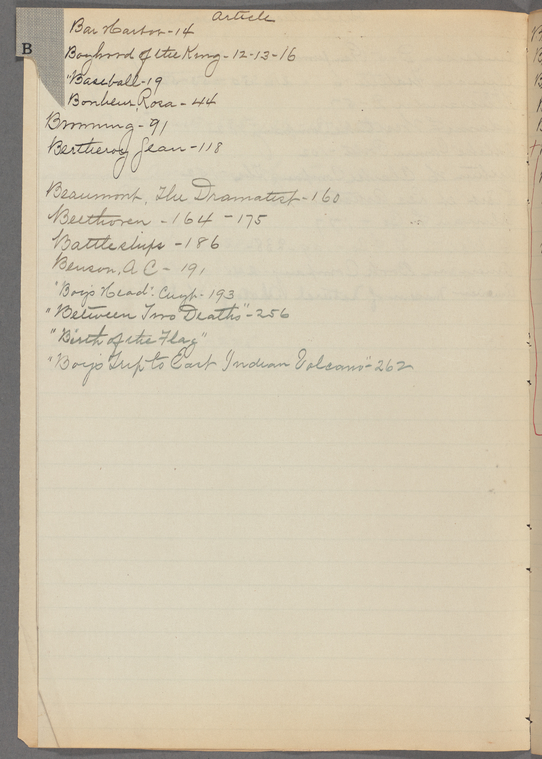 Article
B
Bar Harbor - 14
Boyhood of the King - 12-13-16
"Baseball - 19
Bonheur, Rosa - 44
Browning - 91
Bertheroy Jean - 118
Beaumont, The Dramatist - 160
Beethoven - 164 - 175
Battleships - 186
Benson, A C - 191
"Boy's Head". Cuyp - 193
"Between Two Deaths" - 256
"Birth of the Flag"
"Boy's Trip to East Indian Volcano" - 262